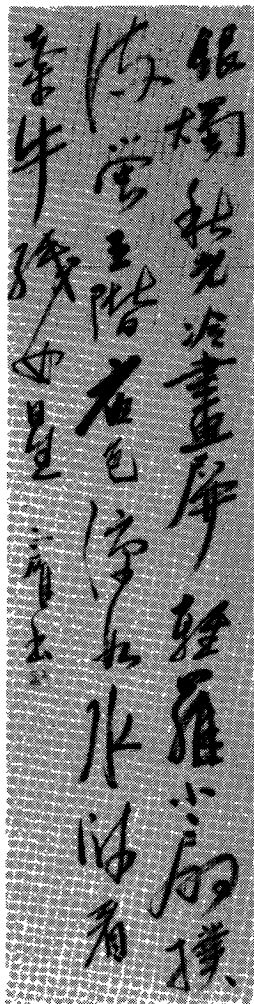 銀燭秋光冷畫屏輕羅小扇撲
流螢玉階夜色涼如水卧看
牽牛織女星 書